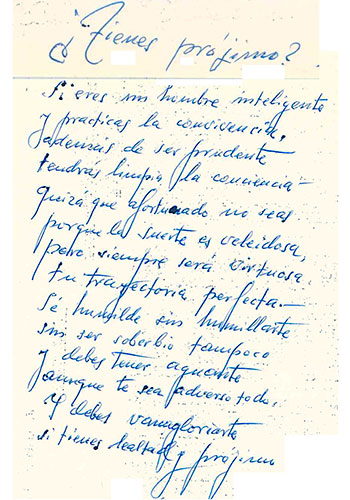 ¿Tienes prójimo?
Si eres un hombre inteligente
y practicas la convivencia,
y además de ser prudente
tendras limpia la conciencia—
Quizá que afortunado no seas
porque la suerte es veleidosa,
pero siempre será virtuosa
tu trayectoria perfecta.—
Sé humilde sin humillarte
sin ser soberbio tampoco
y debes tener aguante
aunque te sea adverso todo.
Y debes vanagloriarte
si tienes lealtad y prójimo